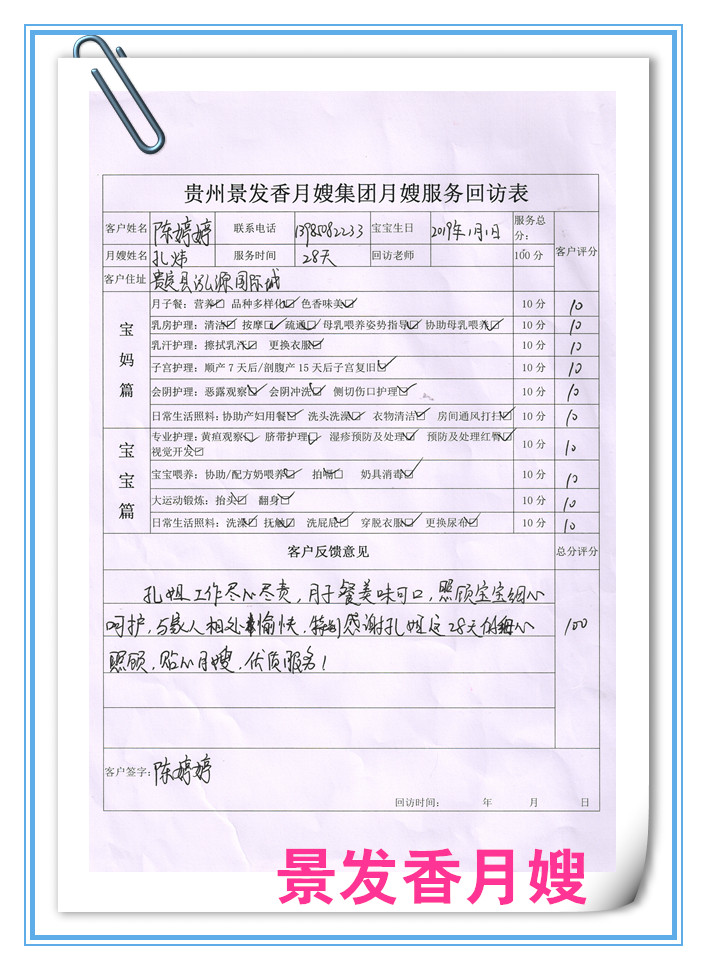 贵州景发香月嫂集团月嫂服务回访表
客户姓名 陈婷婷 联系电话 13985082233 宝宝生日 2019年1月1日 服务总分: 客户评分
月嫂姓名 孔炜 服务时间 28天 回访老师 100分
客户住址 贵定县泓源国际城
宝妈篇
月子餐：营养☑ 品种多样化☑ 色香味美☑ 10分 10
乳房护理：清洁☑ 按摩☑ 疏通☑ 母乳喂养姿势指导☑ 协助母乳喂养☑ 10分 10
乳汗护理：擦拭乳汗☑ 更换衣服☑ 10分 10
子宫护理：顺产7天后/剖腹产15天后子宫复旧☑ 10分 10
会阴护理：恶露观察☑ 会阴冲洗☑ 侧切伤口护理☑ 10分 10
日常生活照料：协助产妇用餐☑ 洗头洗澡☑ 衣物清洁☑ 房间通风打扫☑ 10分 10
宝宝篇
专业护理：黄疸观察☑ 脐带护理☑ 湿疹预防及处理☑ 预防及处理红臀☑
视觉开发☑ 10分 10
宝宝喂养：协助/配方奶喂养☑ 拍嗝☑ 奶具消毒☑ 10分 10
大运动锻炼：抬头☑ 翻身☑ 10分 10
日常生活照料：洗澡☑ 抚触☑ 洗屁屁☑ 穿脱衣服☑ 更换尿布☑ 10分 10
客户反馈意见 总分评分
孔姐工作尽心尽责，月子餐美味可口，照顾宝宝细心
呵护，与家人相处愉快，特别感谢孔姐这28天的细心 100
照顾，贴心月嫂，优质服务！
客户签字：陈婷婷
回访时间： 年 月 日
景发香月嫂